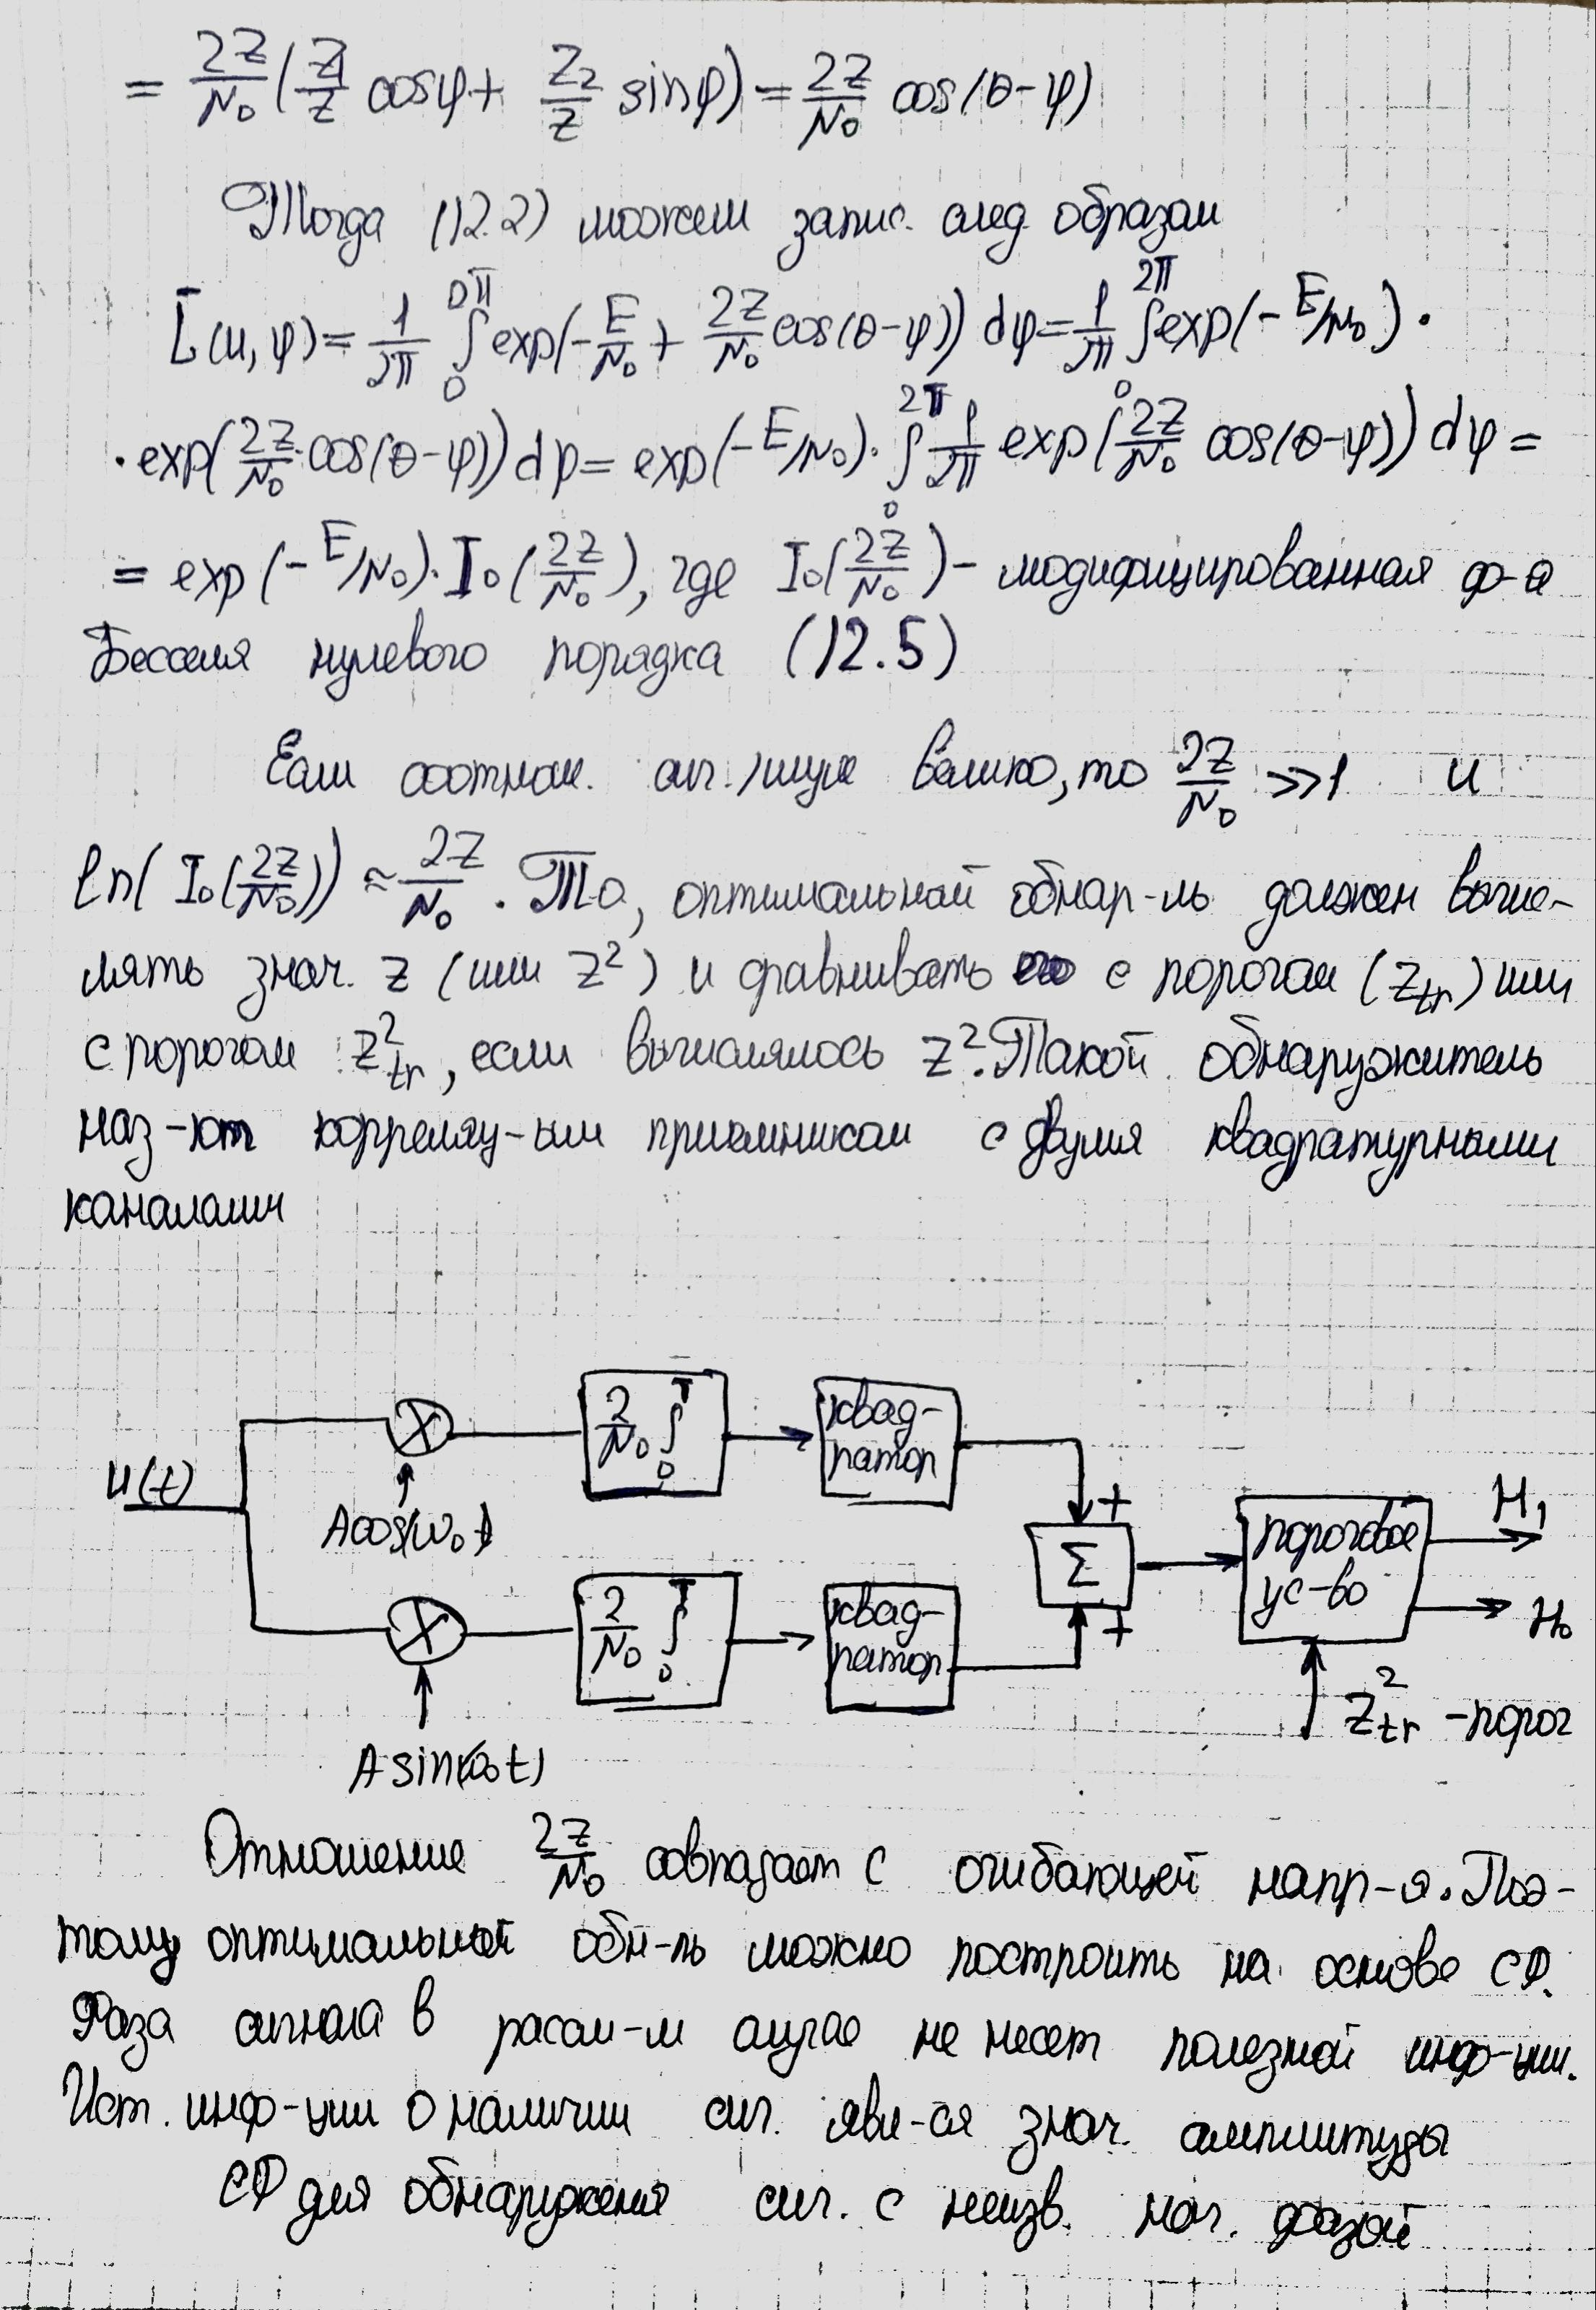 = 2Z/N₀ (Z₁/Z cosφ + Z₂/Z sinφ) = 2Z/N₀ cos(θ-φ)
Тогда (12.2) можем запис. след. образом
L̄(u,φ) = 1/2π ∫₀^2π exp(-E/N₀ + 2Z/N₀ cos(θ-φ)) dφ = 1/2π ∫₀^2π exp(-E/N₀) ·
· exp(2Z/N₀ cos(θ-φ)) dφ = exp(-E/N₀) · ∫₀^2π 1/2π exp(2Z/N₀ cos(θ-φ)) dφ =
= exp(-E/N₀) · I₀(2Z/N₀), где I₀(2Z/N₀) - модифицированная ф-я
Бесселя нулевого порядка (12.5)
Если соотнош. сиг./шум велико, то 2Z/N₀ >> 1 и
ln(I₀(2Z/N₀)) ≈ 2Z/N₀. То, оптимальный обнар-ль должен вычис-
лять знач. z (или z²) и сравнивать его с порогом (z_tr) или
с порогом z²_tr, если вычислялось z². Такой обнаружитель
наз-ют корреляц-ым приемником с двумя квадратурными
каналами
u(t)
X
Acos(ω₀t)
2/N₀ ∫₀^T
квад-
ратор
+
Σ
+
пороговое
ус-во
H₁
H₀
z²_tr - порог
X
Asin(ω₀t)
2/N₀ ∫₀^T
квад-
ратор
Отношение 2Z/N₀ совпадает с огибающей напр-я. Поэ-
тому оптимальный обн-ль можно построить на основе СФ.
Фаза сигнала в рассм-м случае не несет полезной инф-ции.
Ист. инф-ции о наличии сиг. явл-ся знач. амплитуды
СФ для обнаружения сиг. с неизв. нач. фазой